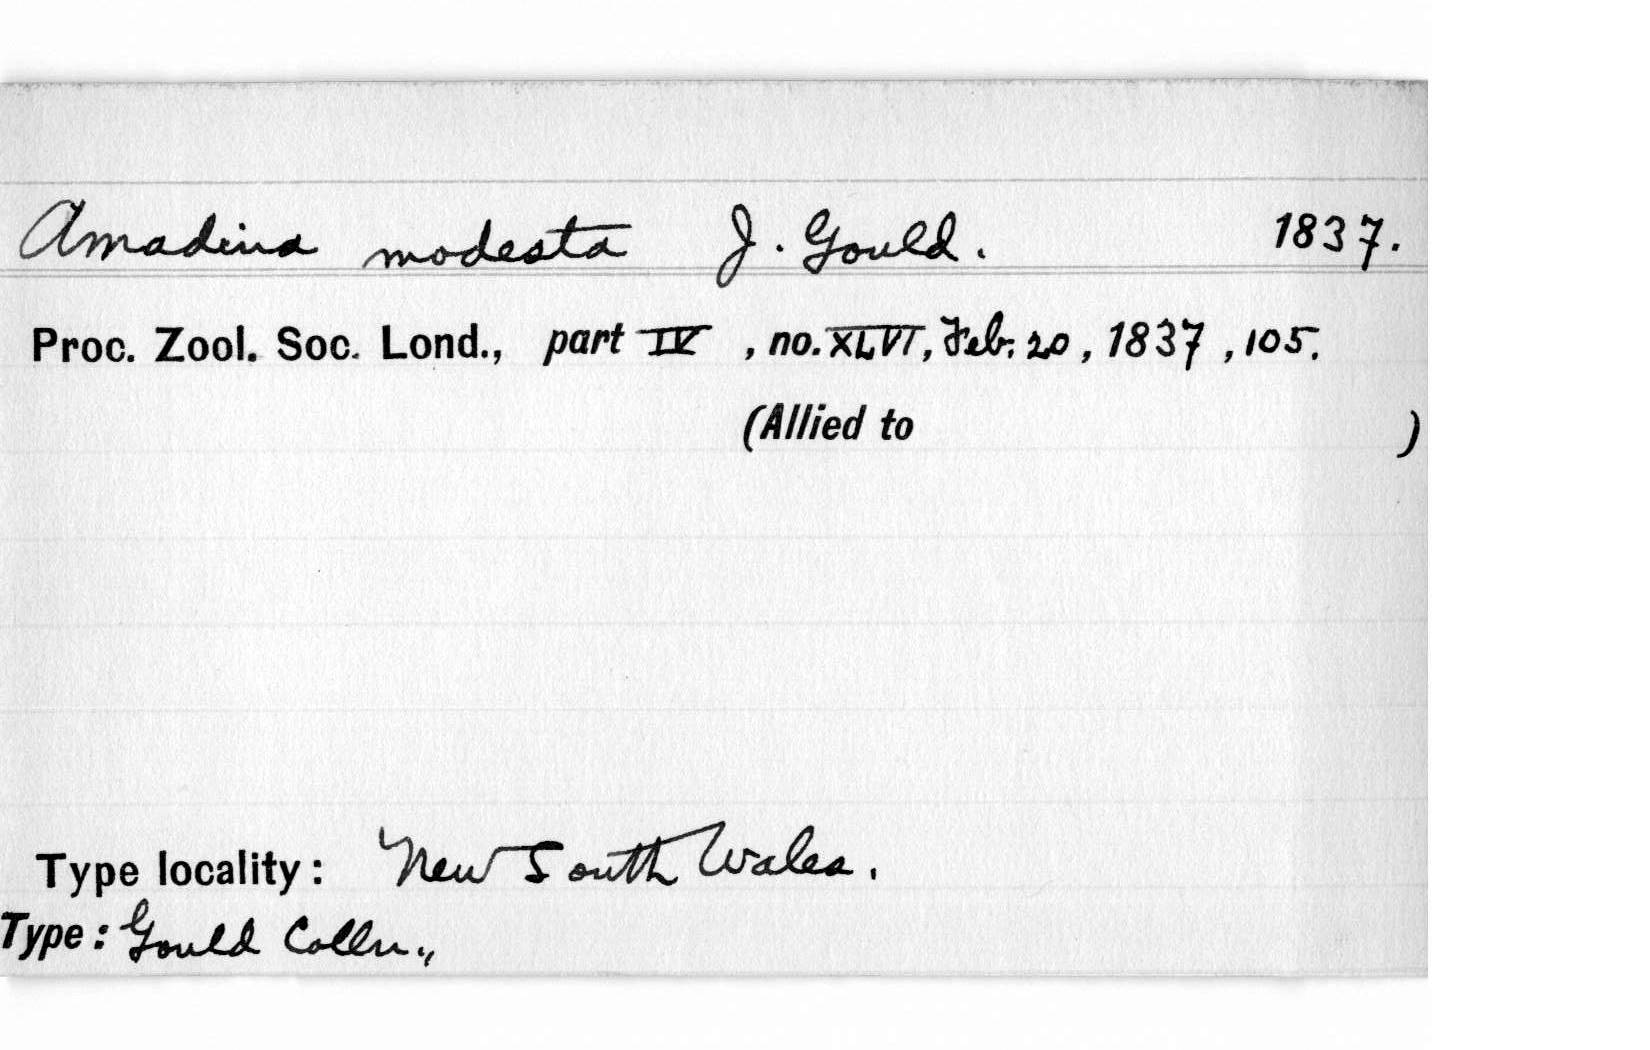 Amadina modesta J. Gould. 1837.
Proc. Zool. Soc. Lond., part IV, no. XLVI, Feb. 20, 1837, 105.
(Allied to )
Type locality: New South Wales.
Type: Gould Colln.,